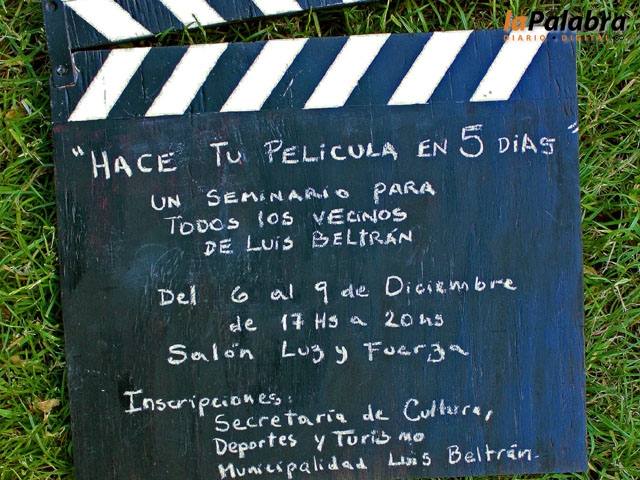 laPalabra
DIARIO • DIGITAL
"HACE TU PELÍCULA EN 5 DÍAS"
UN SEMINARIO PARA
TODOS LOS VECINOS
DE LUIS BELTRÁN
Del 6 al 9 de Diciembre
de 17 Hs a 20 Hs
Salón Luz y Fuerza
Inscripciones:
Secretaría de Cultura,
Deportes y Turismo
Municipalidad Luis Beltrán.